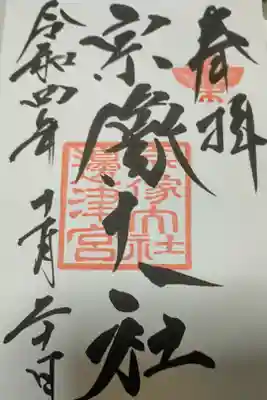 奉拝
宗像大社
宗像大社
邊津宮
令和四年